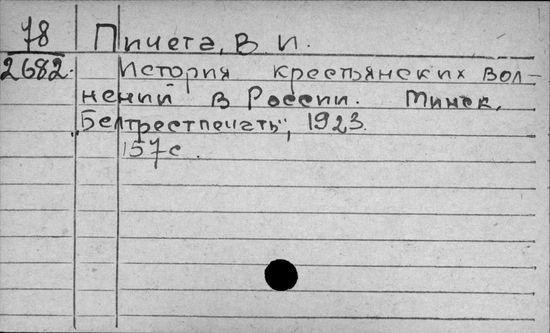 78 Пичета, В. И.
2682. История крестьянских вол-
нений в России. Минск,
„Белтрестпечать", 1923.
157 с.